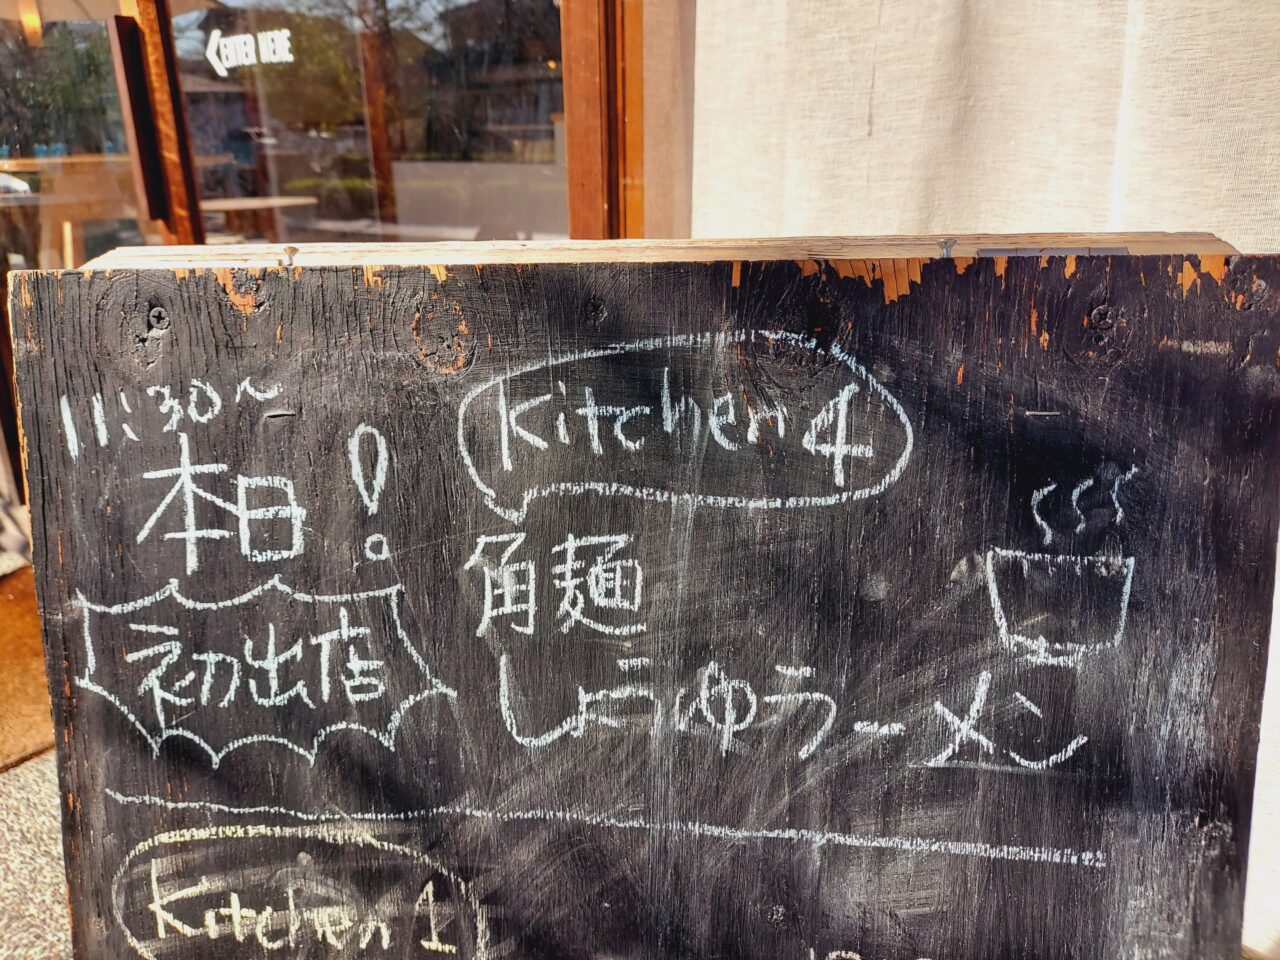 ENTER HERE
11:30～
本日!
初出店
Kitchen 4
角麺
しょうゆラーメン
Kitchen 1